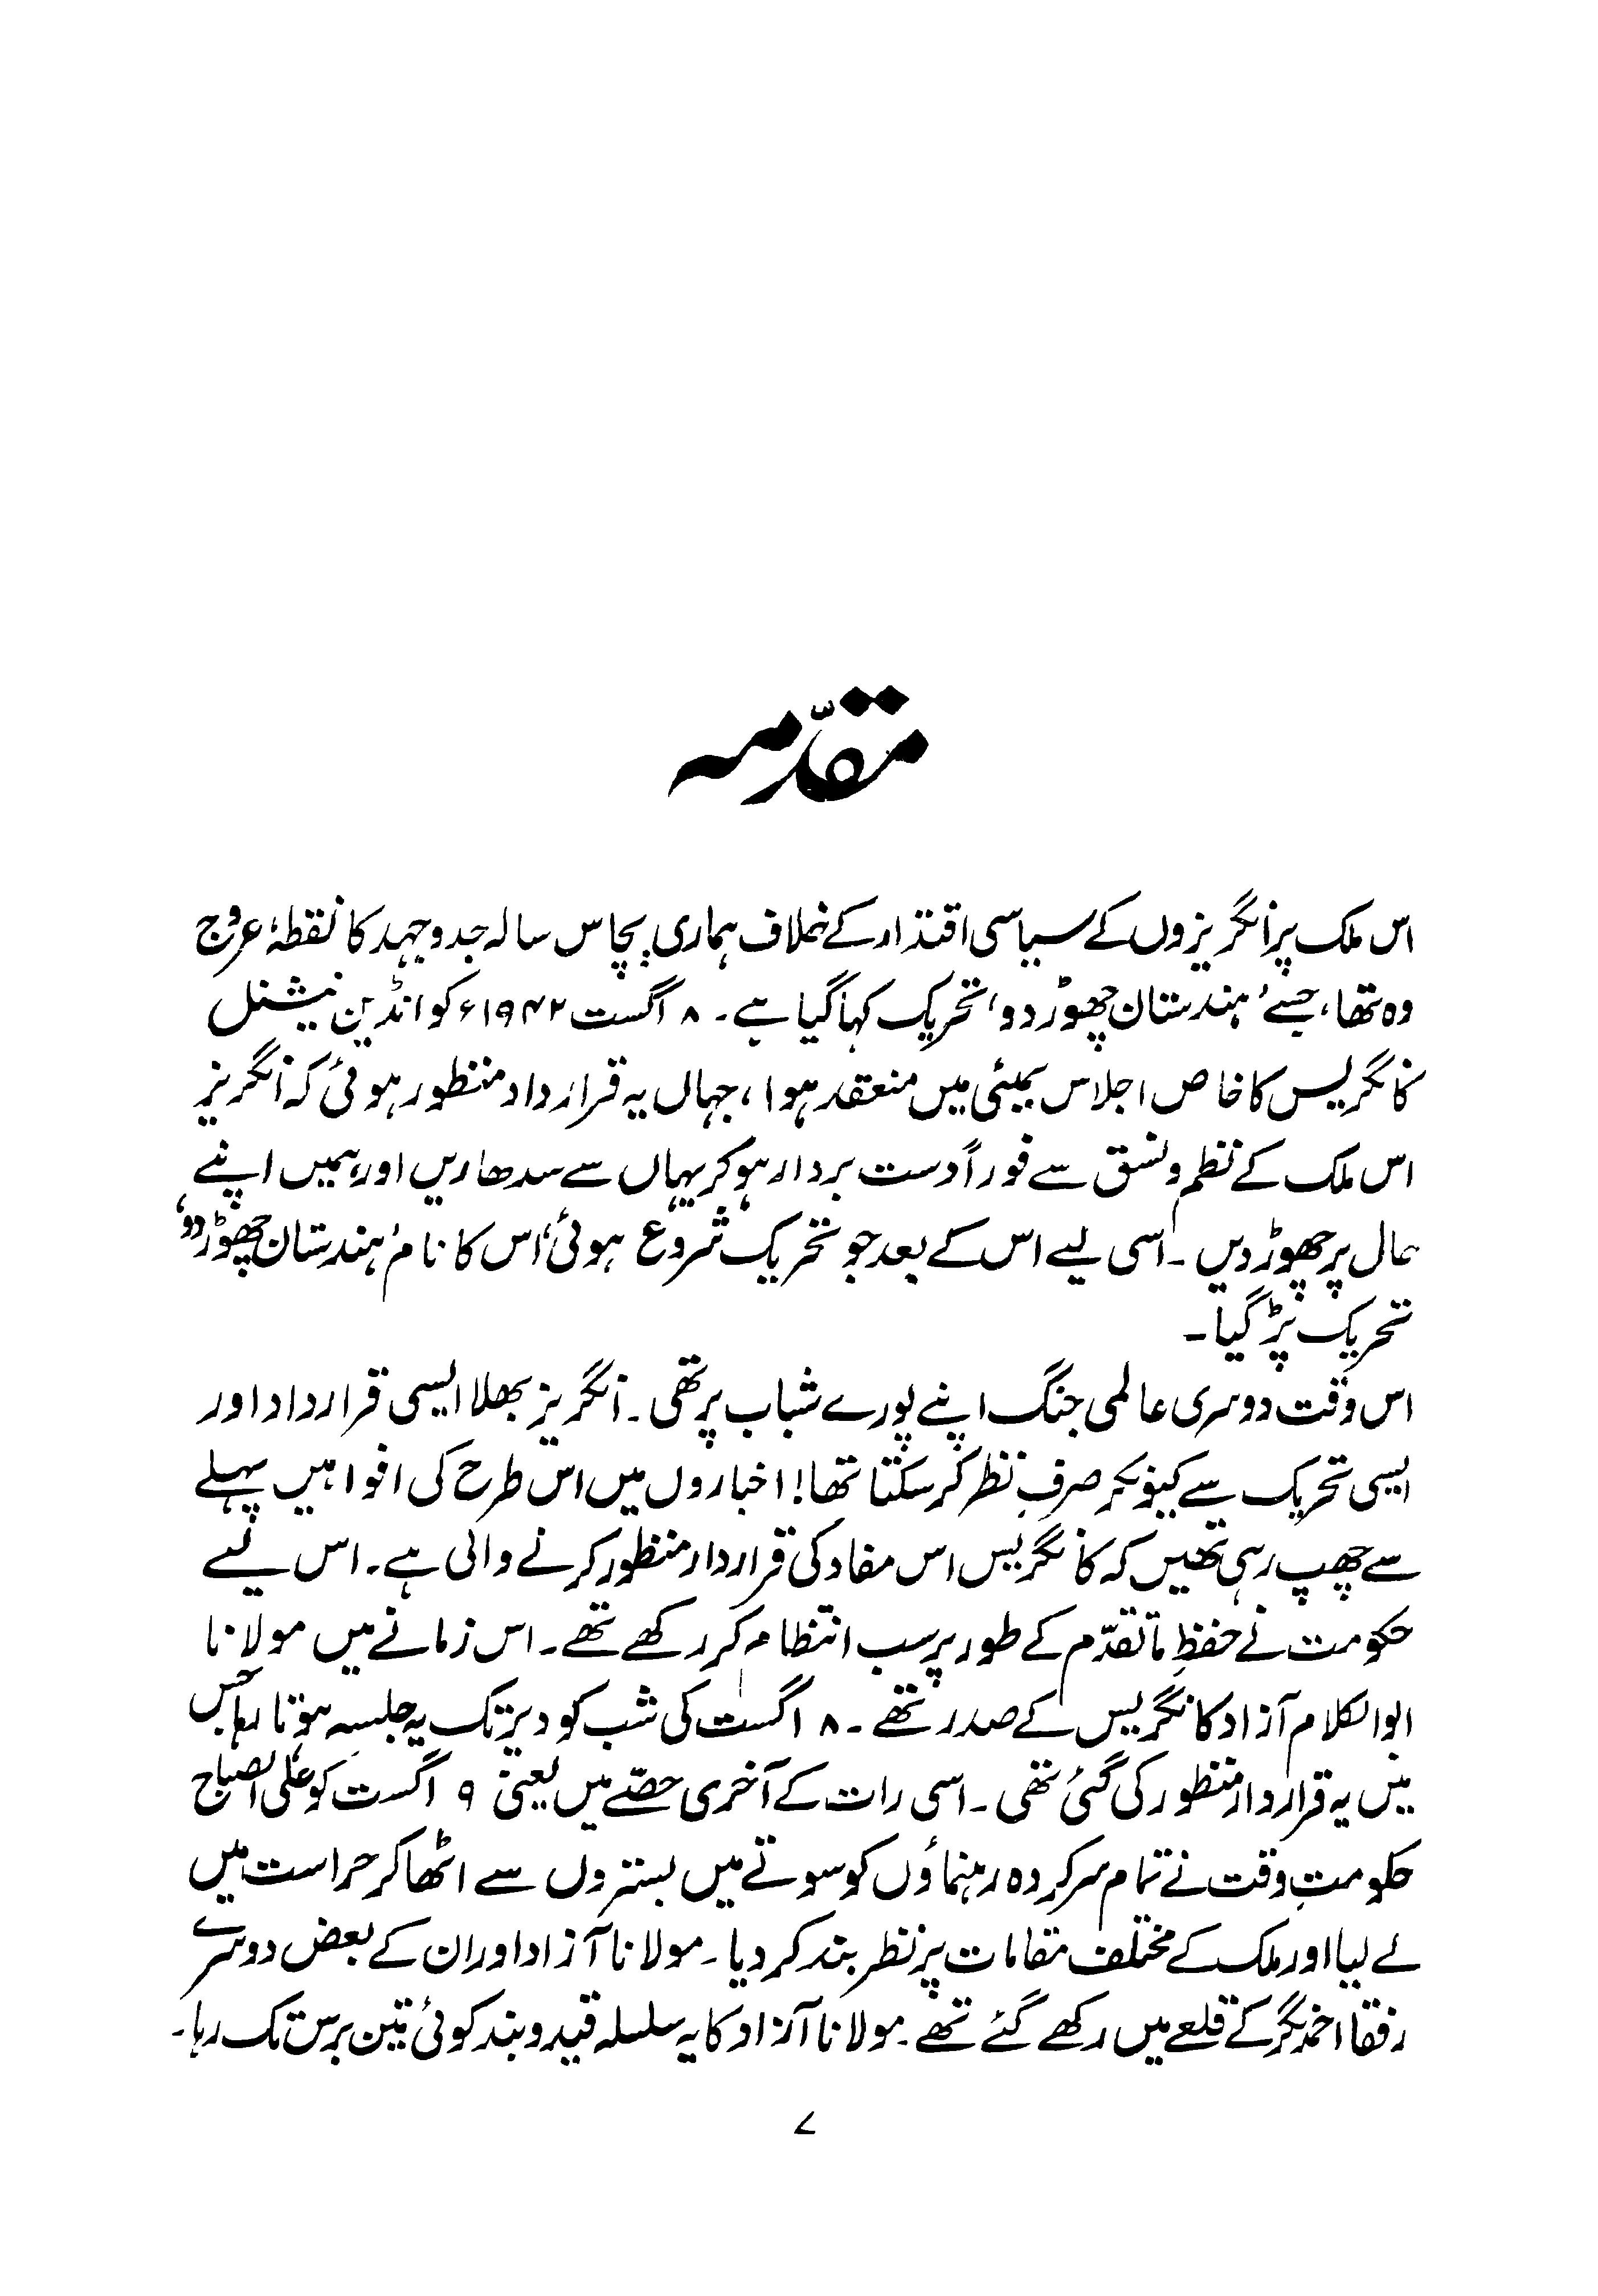 مقدّمہ
اس ملک پر انگریزوں کے سیاسی اقتدار کے خلاف ہماری پچاس سالہ جدوجہد کا نقطۂ عروج
وہ تھا، جسے ’ہندستان چھوڑ دو‘ تحریک کہا گیا ہے۔ ۸ اگست ۱۹۴۲ء کو انڈین نیشنل
کانگریس کا خاص اجلاس بمبئی میں منعقد ہوا، جہاں یہ قرارداد منظور ہوئی کہ انگریز
اس ملک کے نظم و نسق سے فوراً دست بردار ہو کر یہاں سے سدھاریں اور ہمیں اپنے
حال پر چھوڑ دیں۔ اسی لیے اس کے بعد جو تحریک شروع ہوئی، اس کا نام ’ہندستان چھوڑ دو‘
تحریک پڑ گیا۔
اس وقت دوسری عالمی جنگ اپنے پورے شباب پر تھی۔ انگریز بھلا ایسی قرارداد اور
ایسی تحریک سے کیونکر صرفِ نظر کر سکتا تھا! اخباروں میں اس طرح کی افواہیں پہلے
سے چھپ رہی تھیں کہ کانگریس اس مفاد کی قرارداد منظور کرنے والی ہے۔ اس لیے
حکومت نے حفظِ ماتقدّم کے طور پر سب انتظام کر رکھے تھے۔ اس زمانے میں مولانا
ابوالکلام آزاد کانگریس کے صدر تھے۔ ۸ اگست کی شب کو دیر تک یہ جلسہ ہوتا رہا جس
میں یہ قرارداد منظور کی گئی تھی۔ اسی رات کے آخری حصّے میں یعنی ۹ اگست کو علی الصباح
حکومتِ وقت نے تمام سرکردہ رہنماؤں کو سوتے میں بستروں سے اٹھا کر حراست میں
لے لیا اور ملک کے مختلف مقامات پر نظر بند کر دیا۔ مولانا آزاد اور ان کے بعض دوسرے
رفقا احمد نگر کے قلعے میں رکھے گئے تھے۔ مولانا آزاد کا یہ سلسلہ قید و بند کوئی تین برس تک رہا۔
۷